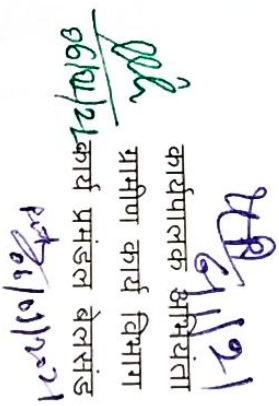 कार्यपालक अभियंता
ग्रामीण कार्य विभाग
कार्य प्रमंडल बेलसंड
06/01/21
6/1/21
06/01/2021